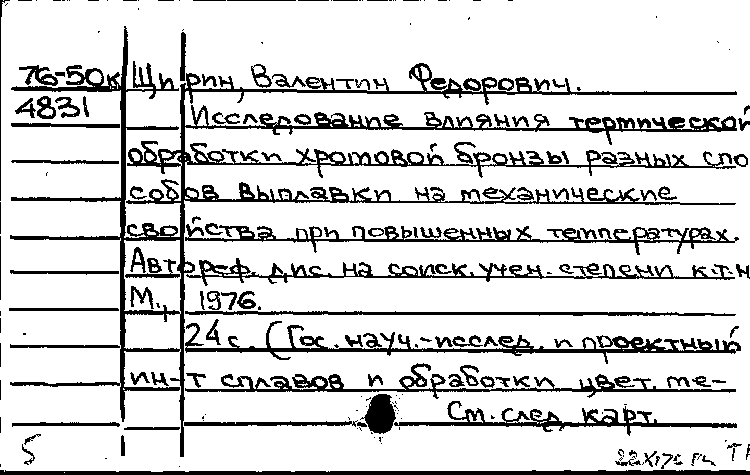 76-50к Щирин, Валентин Федорович.
4831 Исследование влияния термической
обработки хромовой бронзы разных спо
собов выплавки на механические
свойства при повышенных температурах.
Автореф. дис. на соиск. учен. степени к.т.н
М., 1976.
24 с. (Гос. науч.-исслед. и проектный
ин-т сплавов и обработки цвет. ме-
См. след. карт.
5